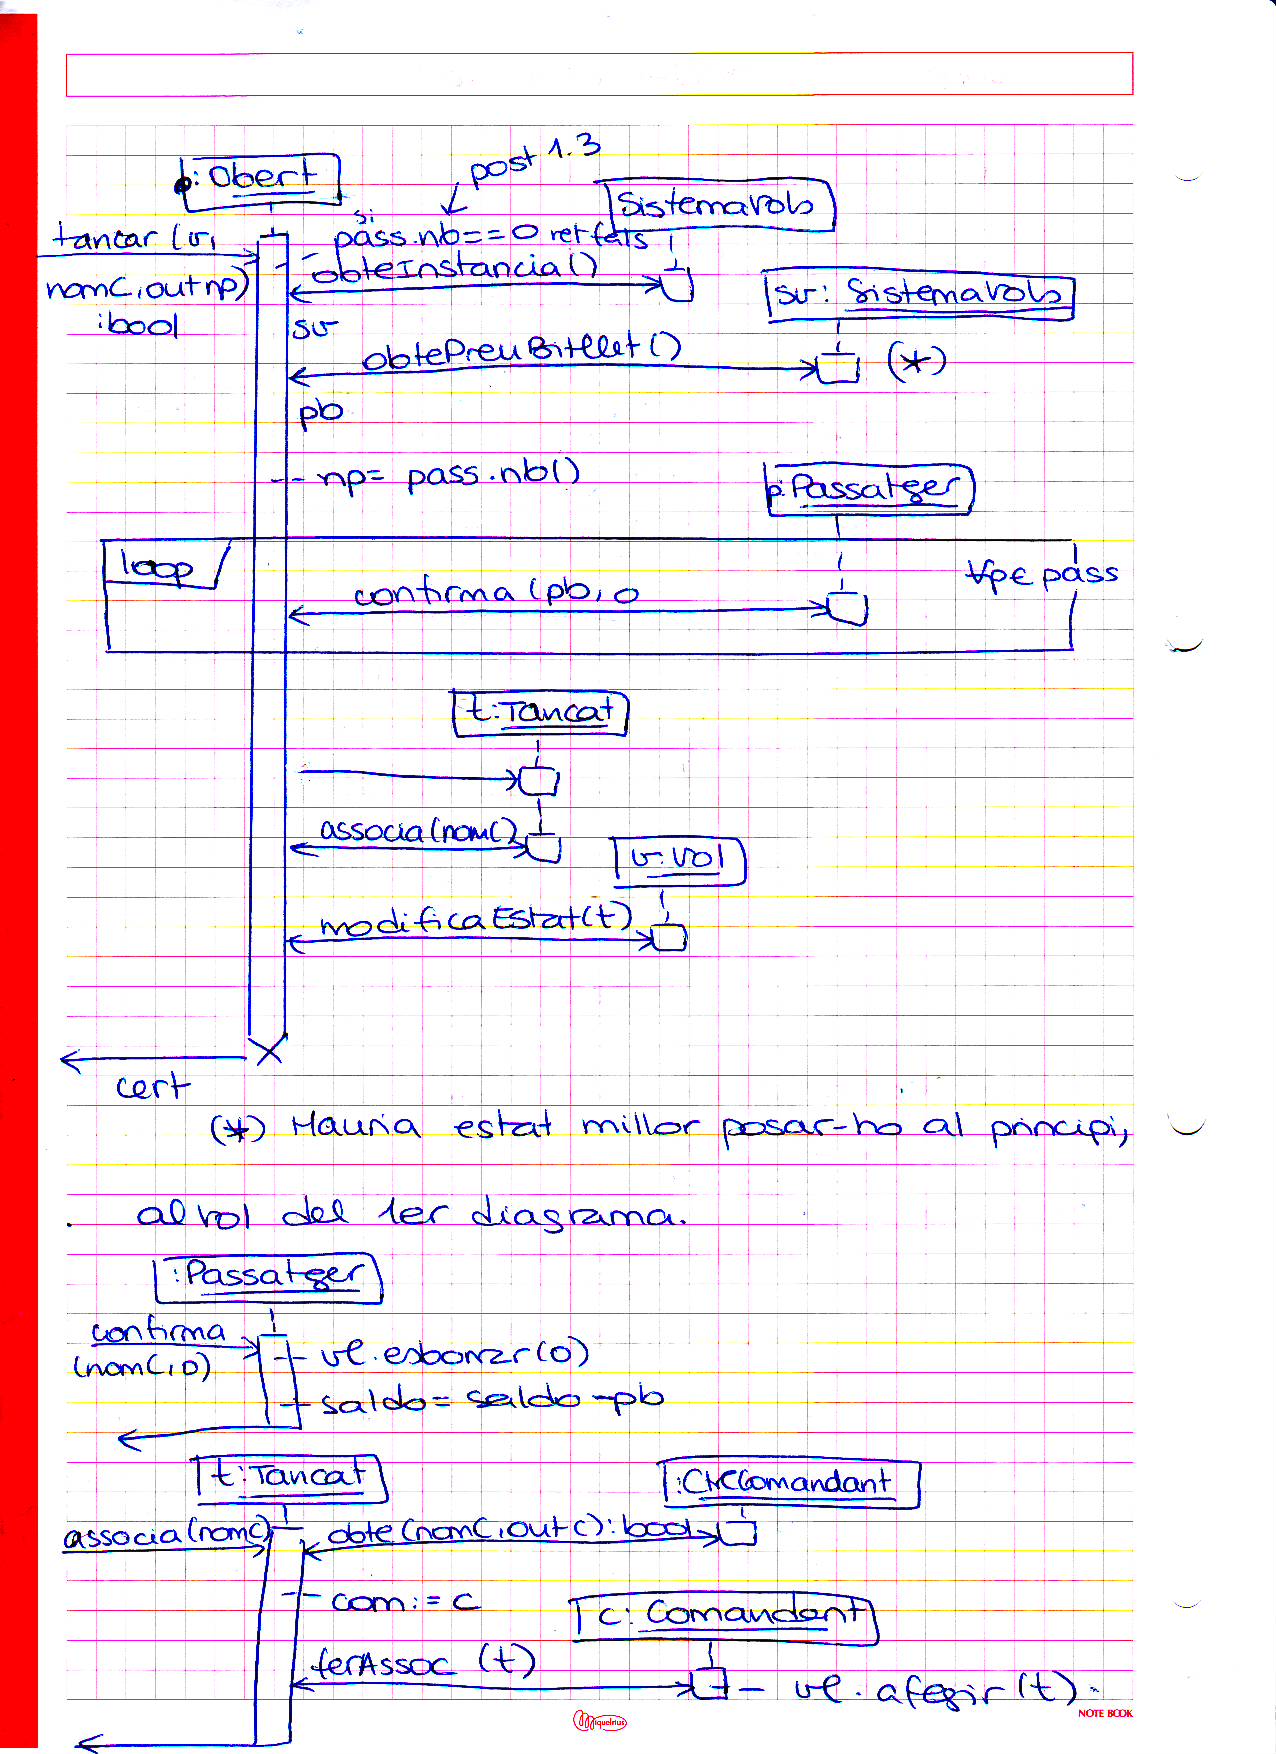 post 1.3
o: Obert
SistemaVols
si
tancar (v, pass.nb==0 ret fals
obteInstancia()
nomC, out np)
sv: SistemaVols
:bool
sv
obtePreuBitllet()
(*)
pb
np= pass.nb()
p:Passatger
loop
∀p∈ pass
confirma (pb, o
t:Tancat
associa(nomC)
v:Vol
modificaEstat(t)
cert
(*) Hauria estat millor posar-ho al principi,
al vol del 1er diagrama.
:Passatger
confirma
vl.esborrar(o)
(nomC, o)
saldo= saldo -pb
t:Tancat
:CtlCComandant
associa(nomC)
obte(nomC, out c): bool
com:= c
c: Comandant
ferAssoc (t)
vl.afegir(t).
Miquelrius
NOTE BOOK